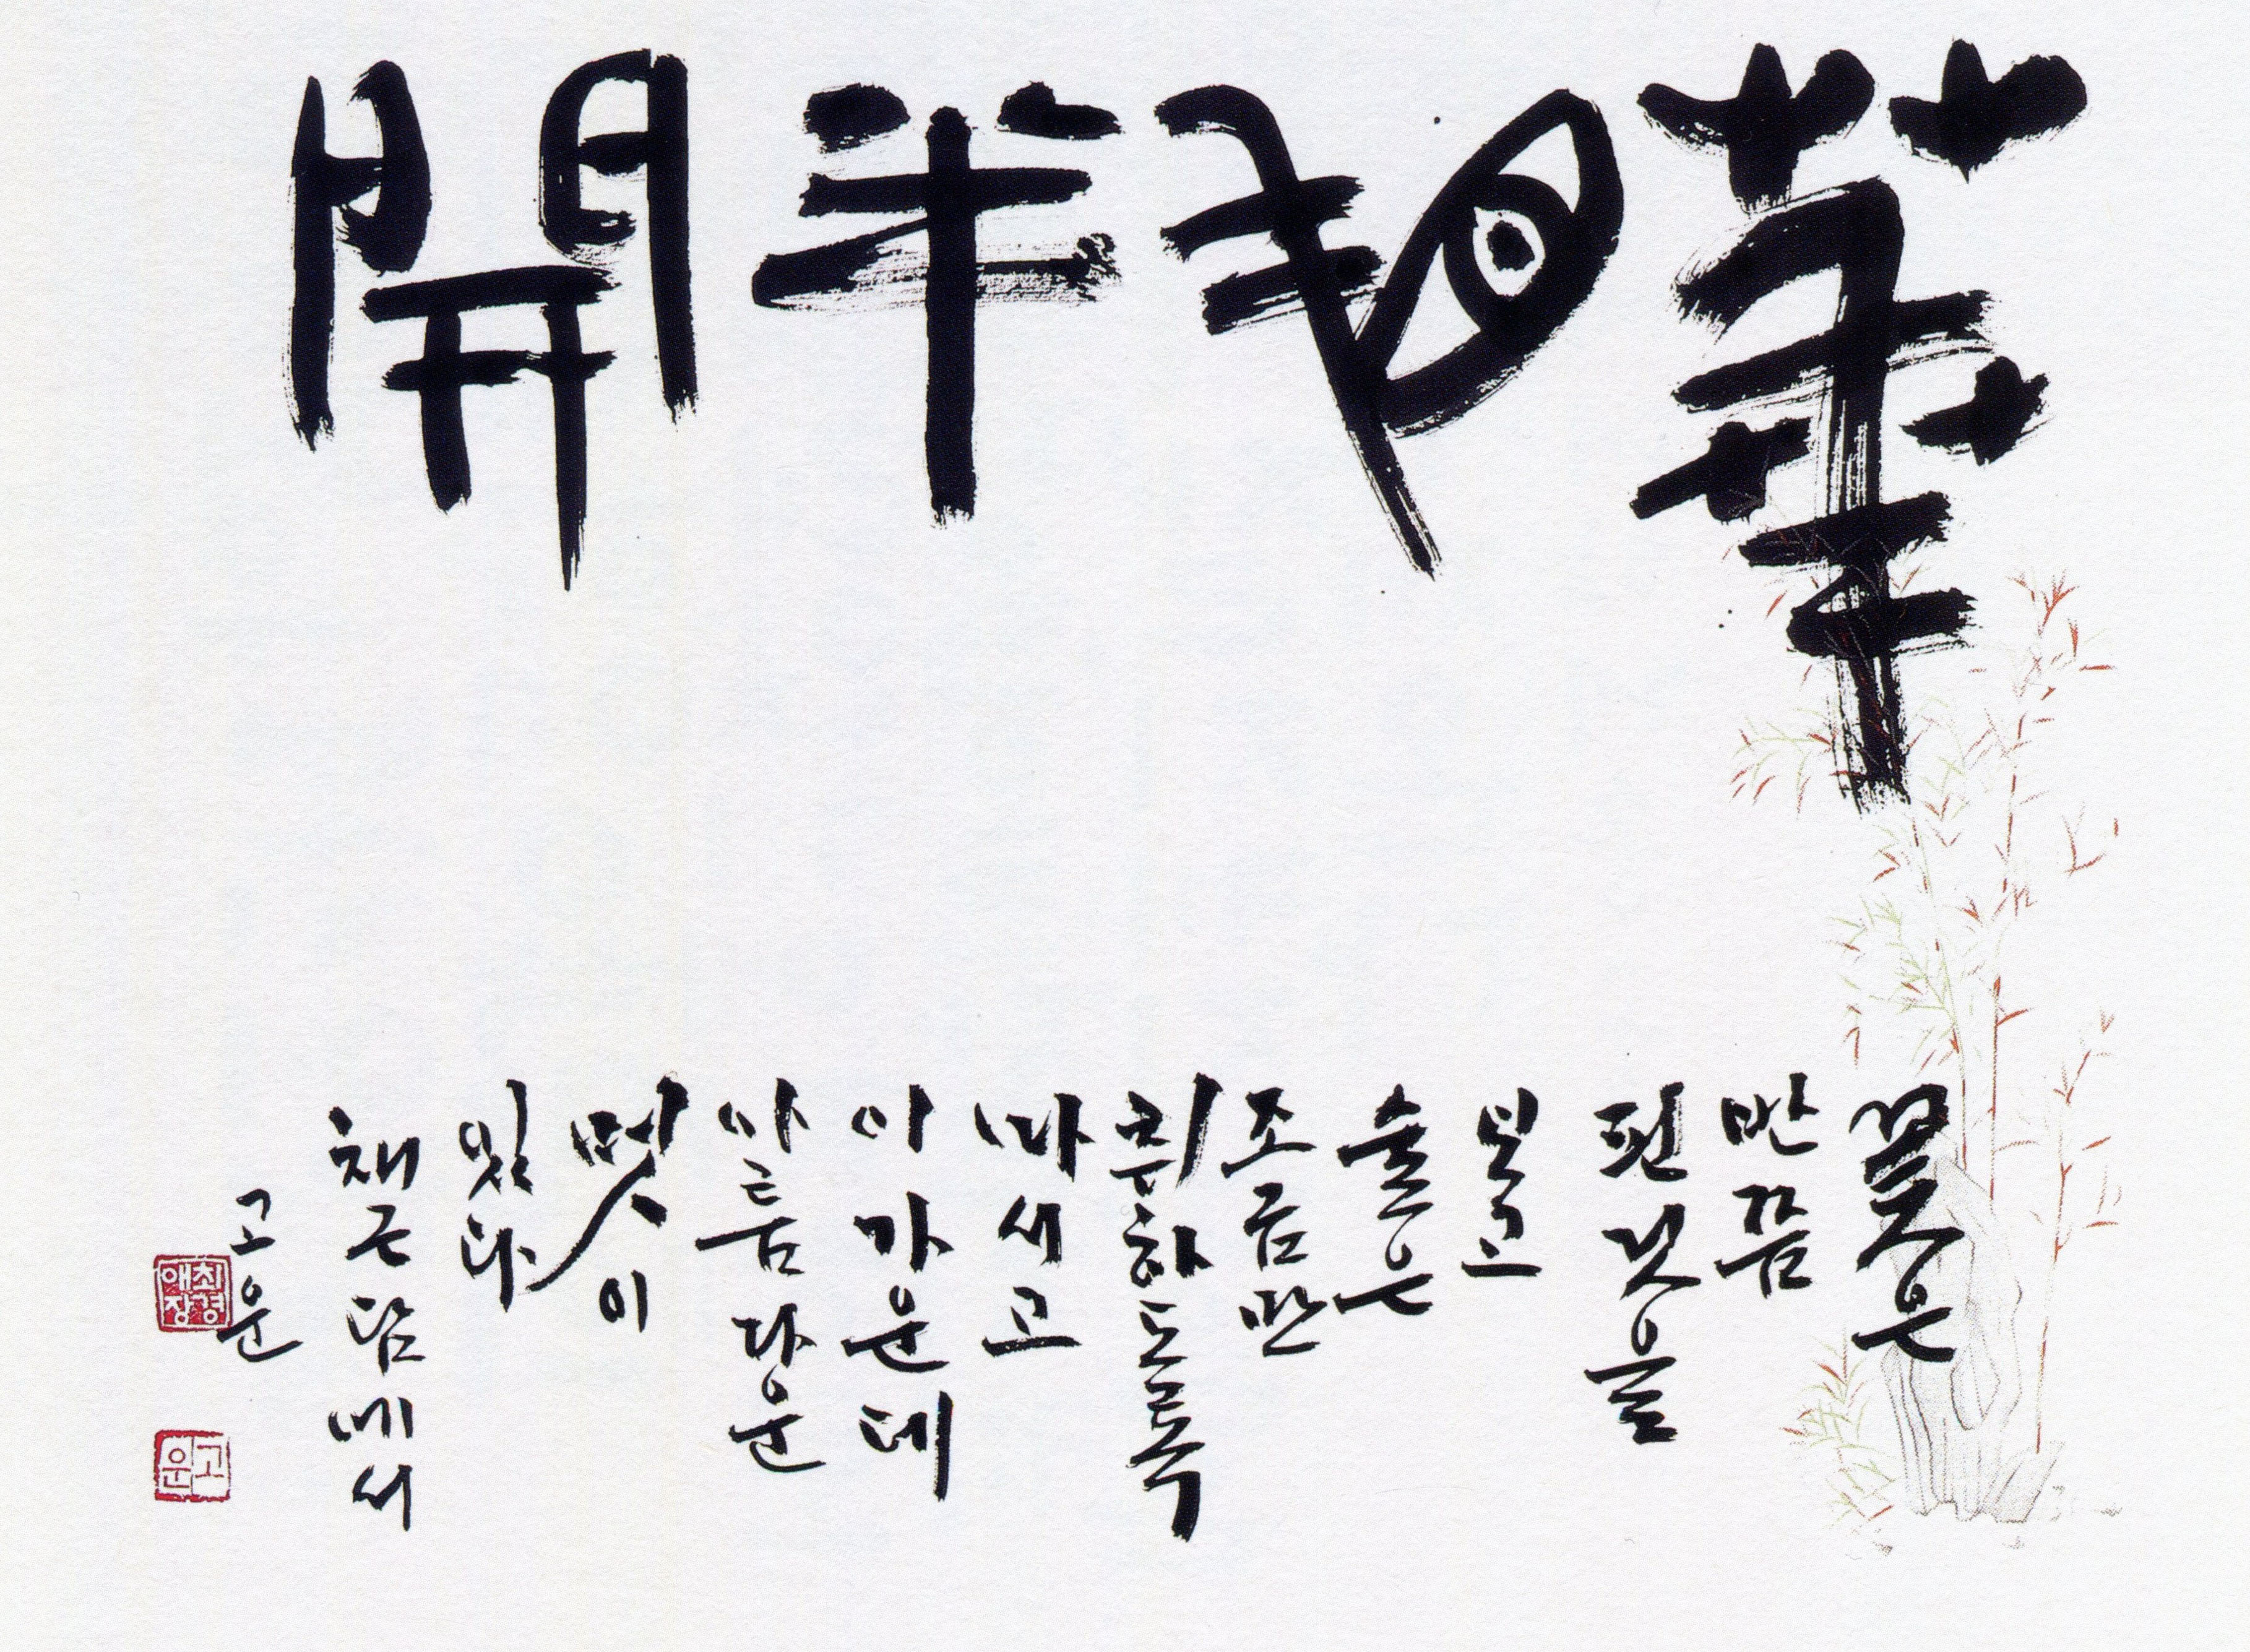 華看半開
꽃은
반쯤
핀것을
보고
술은
조금만
취하도록
마시고
이가운데
아름다운
멋이
있다
채근담에서
고운
최경
애장
고운